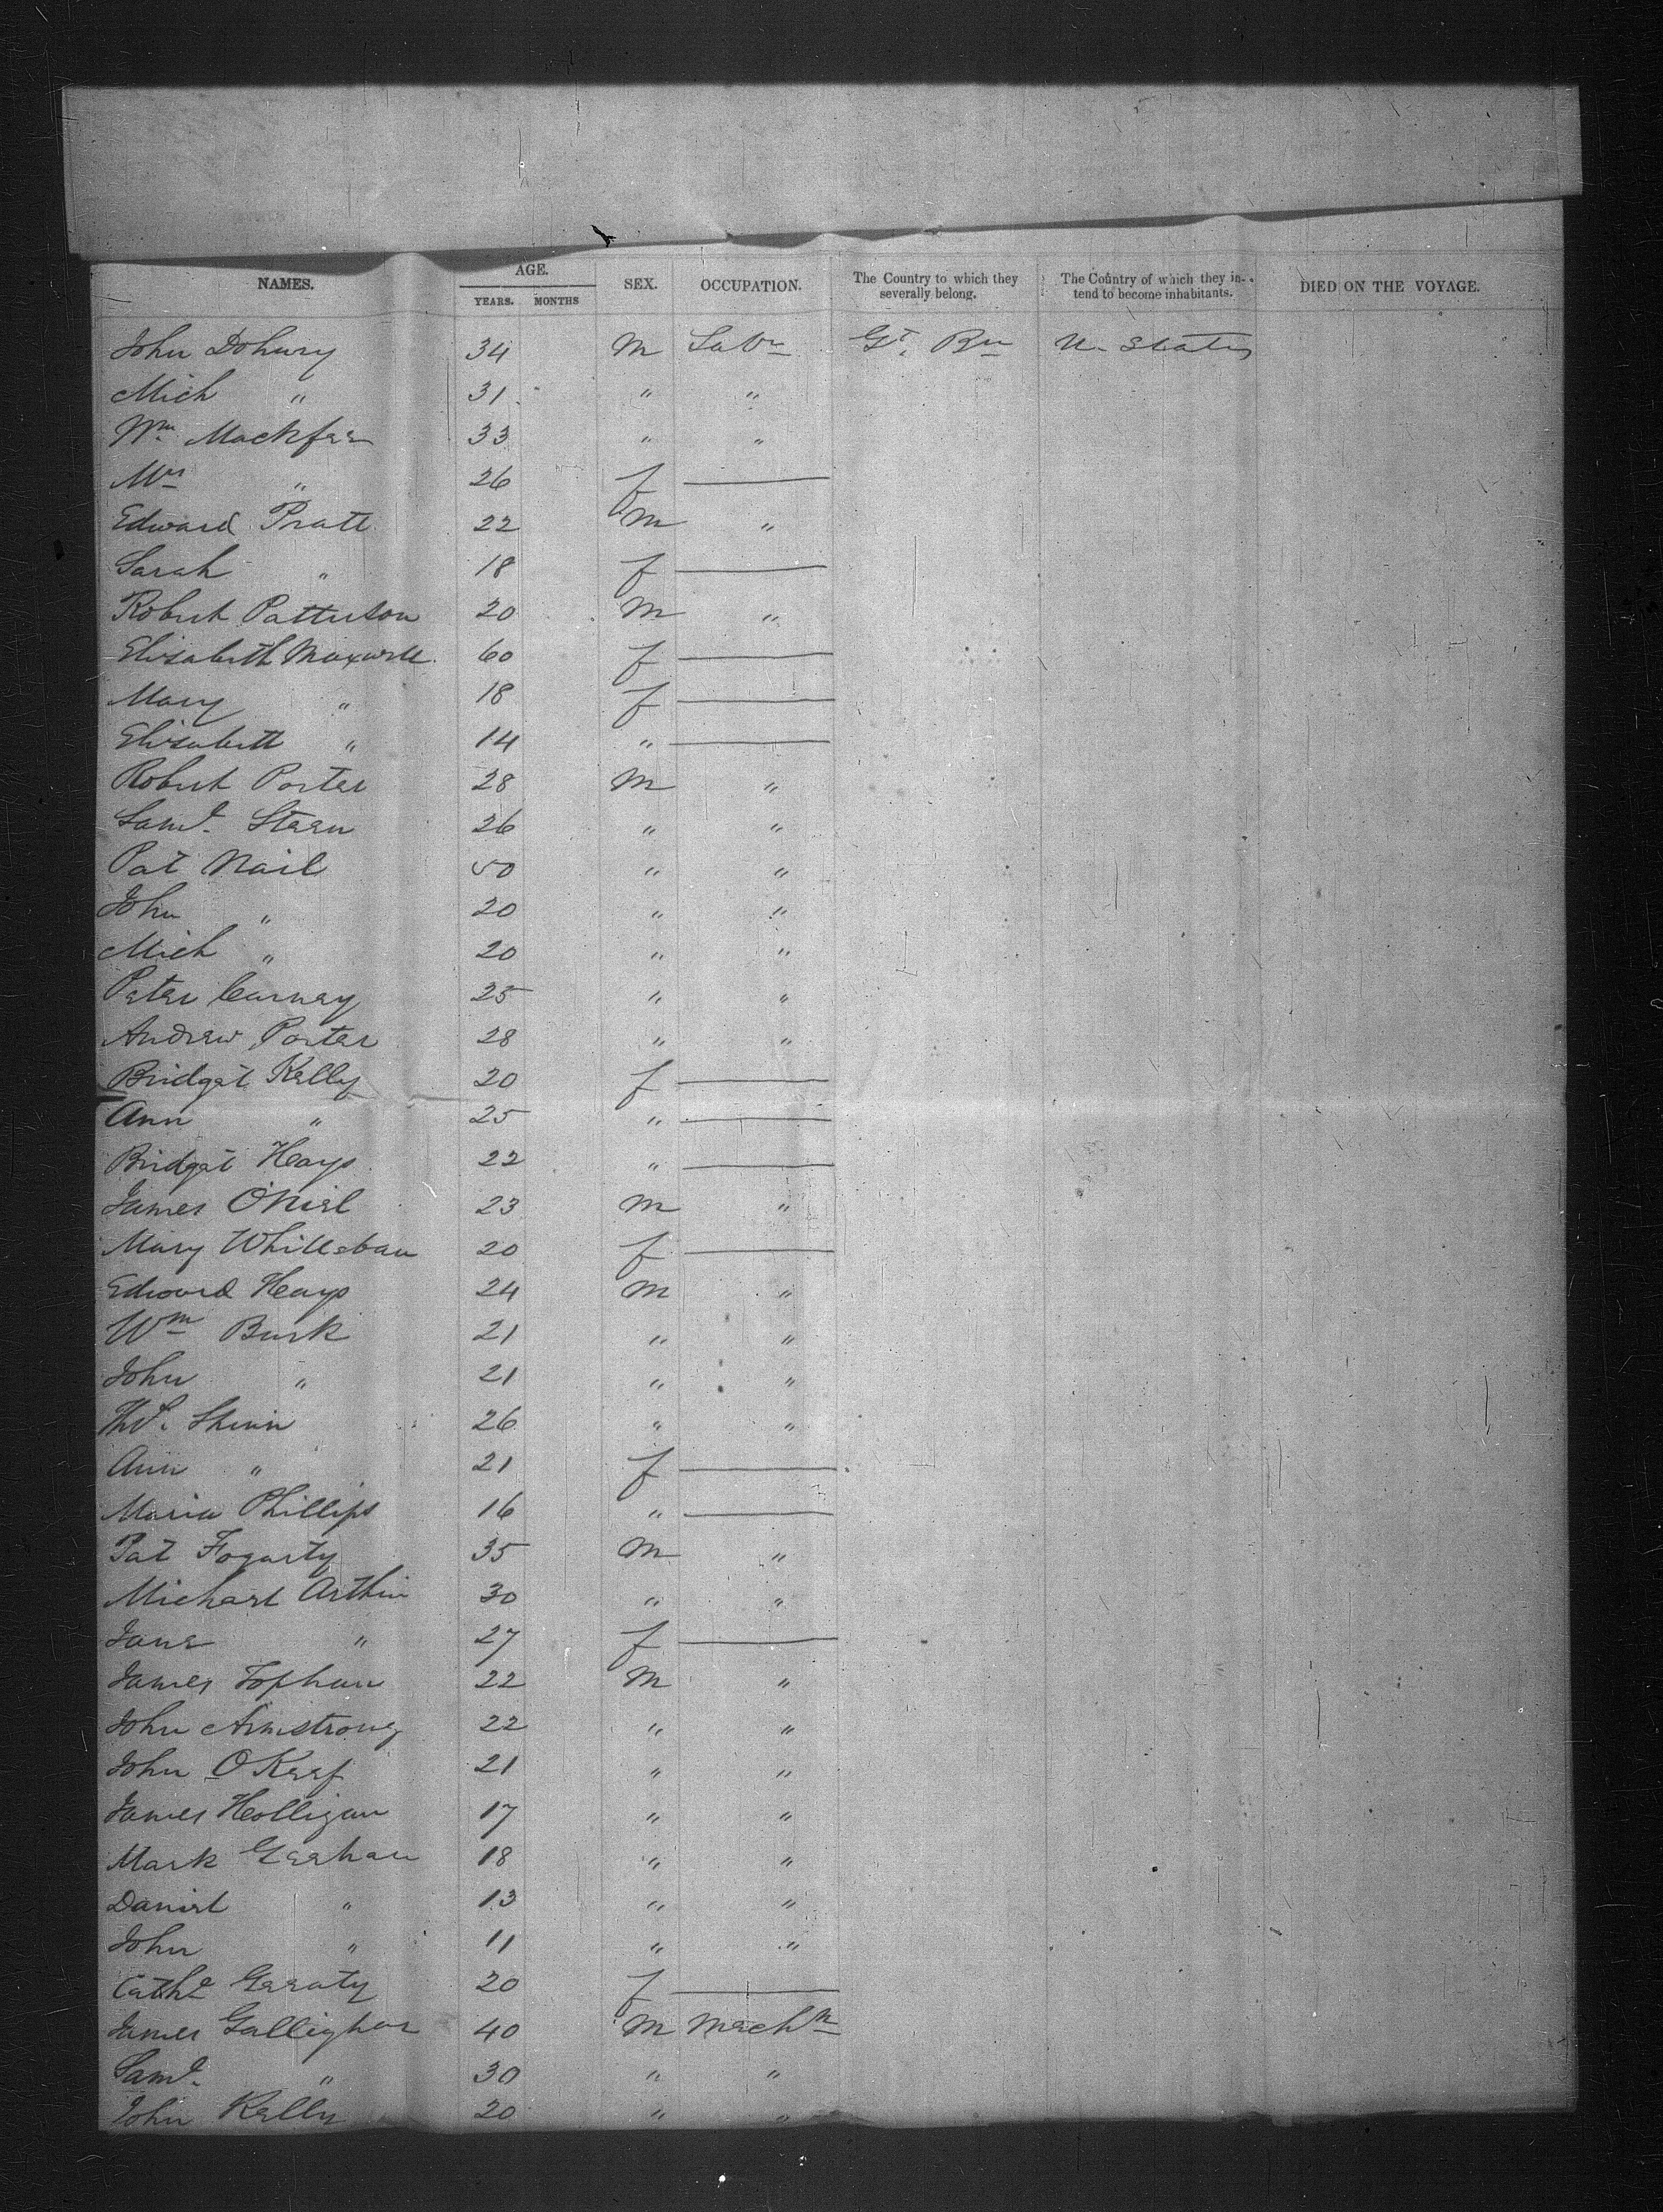 NAMES. AGE. YEARS. MONTHS SEX. OCCUPATION. The Country to which they severally belong. The Country of which they intend to become inhabitants. DIED ON THE VOYAGE.
John Dohury 34 M Labr Gt. Brn U. States
Mich " 31 " "
Wm Mackfee 33 " "
Mrs " 26 f —
Edward Pratt 22 M "
Sarah " 18 f —
Robert Patterson 20 M "
Elizabeth Maxwell 60 f —
Mary " 18 f —
Elizabeth " 14 " —
Robert Porter 28 M "
Saml. Steen 26 " "
Pat Nail 50 " "
John " 20 " "
Mich " 20 " "
Peter Carney 25 " "
Andrew Porter 28 " "
Bridget Kelly 20 f —
Ann " 25 " —
Bridget Hays 22 " —
James O'Niel 23 M "
Mary 20 f —
Edward Hays 24 M "
Wm Burk 21 " "
John " 21 " "
Ths. Shinn 26 " "
Ann " 21 f —
Maria Phillips 16 " —
Pat Fogarty 35 M "
Michael Arthur 30 " "
Jane " 27 f —
James Topham 22 M "
John Armstrong 22 " "
John O Keef 21 " "
James Holligan 17 " "
Mark Geehan 18 " "
Daniel " 13 " "
John " 11 " "
Cathe Geraty 20 f —
James Gallighar 40 M Mechn
Saml. " 30 " "
John Kelly 20 " "